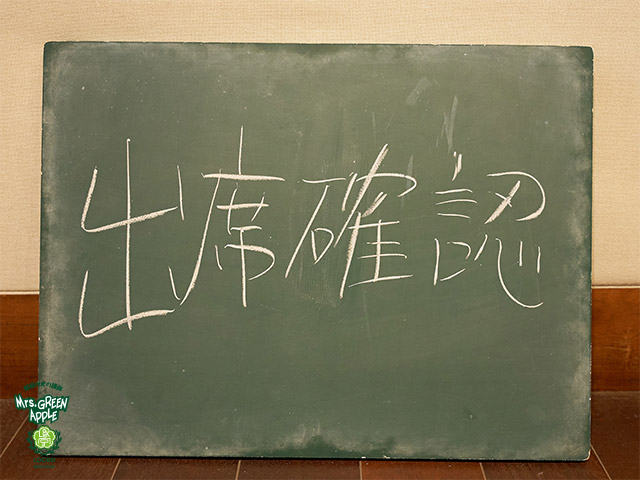 出席確認
Mrs. GREEN
APPLE